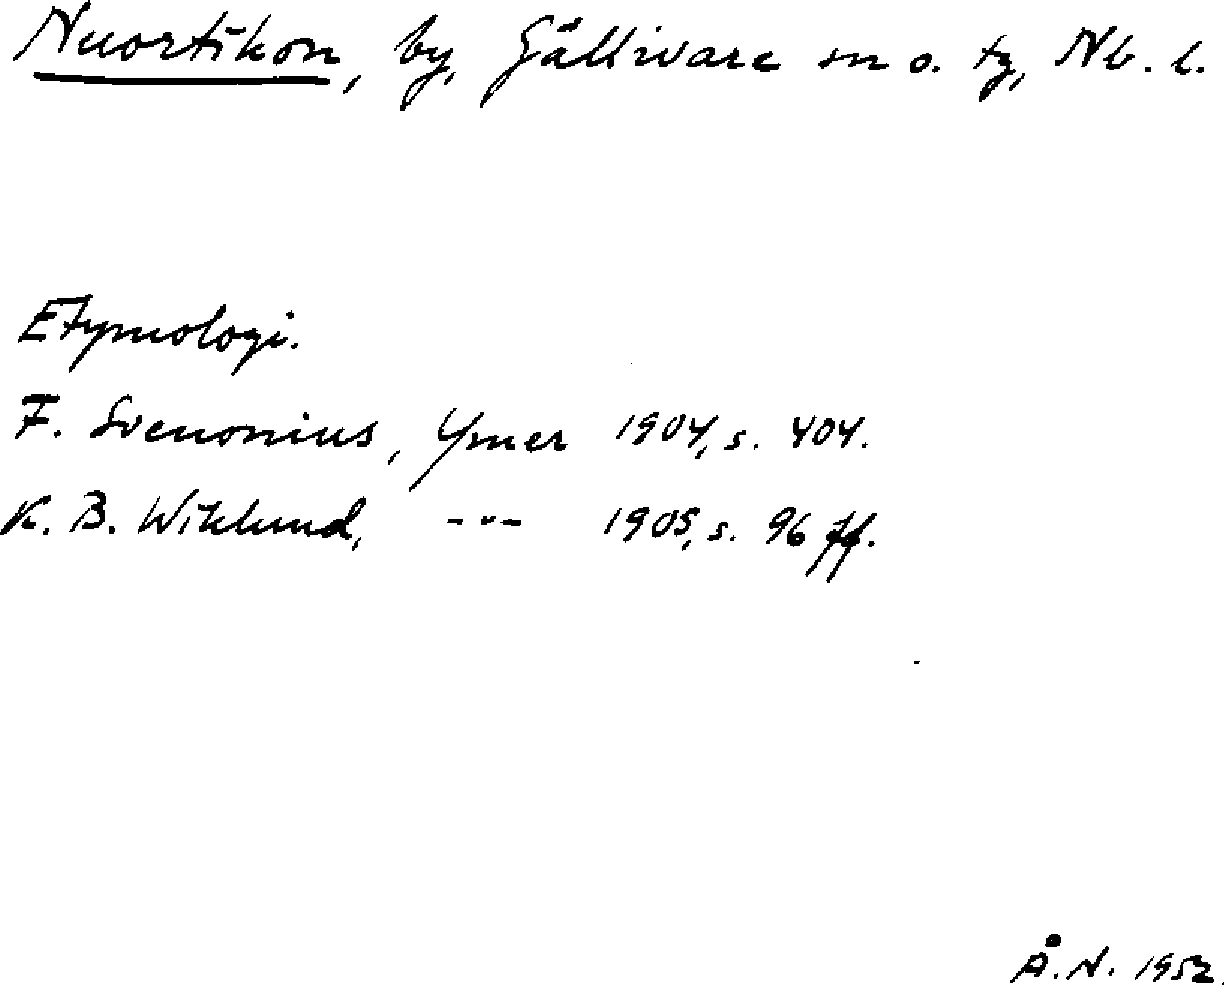 Nuortikon, by, Gällivare sn o. tg, Nb. l.
Etymologi.
F. Svenonius, Ymer 1904, s. 404.
K. B. Wiklund, -"- 1905, s. 96 ff.
Å. N. 1952.